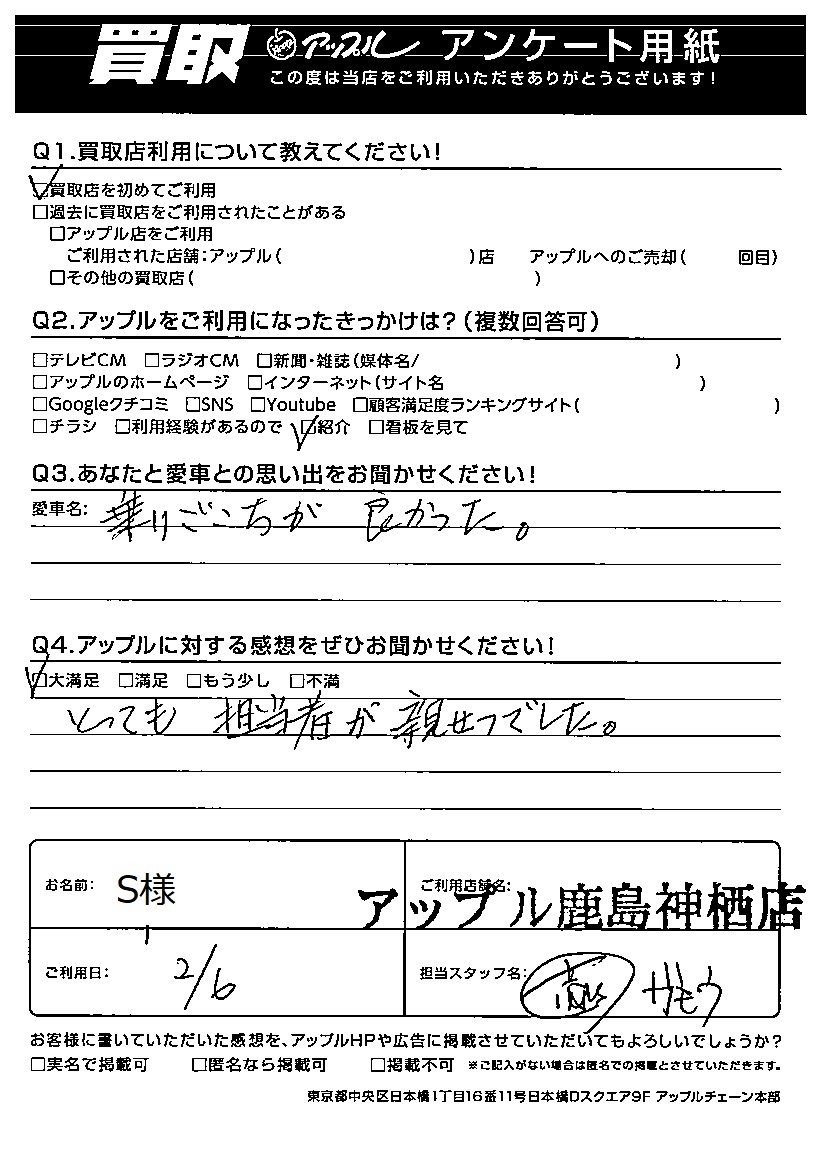 買取 アップル アンケート用紙
この度は当店をご利用いただきありがとうございます!
Q1.買取店利用について教えてください!
☑買取店を初めてご利用
□過去に買取店をご利用されたことがある
□アップル店をご利用
ご利用された店舗:アップル( )店 アップルへのご売却( 回目)
□その他の買取店( )
Q2.アップルをご利用になったきっかけは?(複数回答可)
□テレビCM □ラジオCM □新聞・雑誌(媒体名/ )
□アップルのホームページ □インターネット(サイト名 )
□Googleクチコミ □SNS □Youtube □顧客満足度ランキングサイト( )
□チラシ □利用経験があるので ☑紹介 □看板を見て
Q3.あなたと愛車との思い出をお聞かせください!
愛車名: 乗りごこちが 良かった。
Q4.アップルに対する感想をぜひお聞かせください!
☑大満足 □満足 □もう少し □不満
とっても 担当者が 親せつでした。
お名前: S様
ご利用店舗名: アップル鹿島神栖店
ご利用日: 2/6
担当スタッフ名:
お客様に書いていただいた感想を、アップルHPや広告に掲載させていただいてもよろしいでしょうか?
□実名で掲載可 □匿名なら掲載可 □掲載不可 ※ご記入がない場合は匿名での掲載とさせていただきます。
東京都中央区日本橋1丁目16番11号日本橋Dスクエア9F アップルチェーン本部